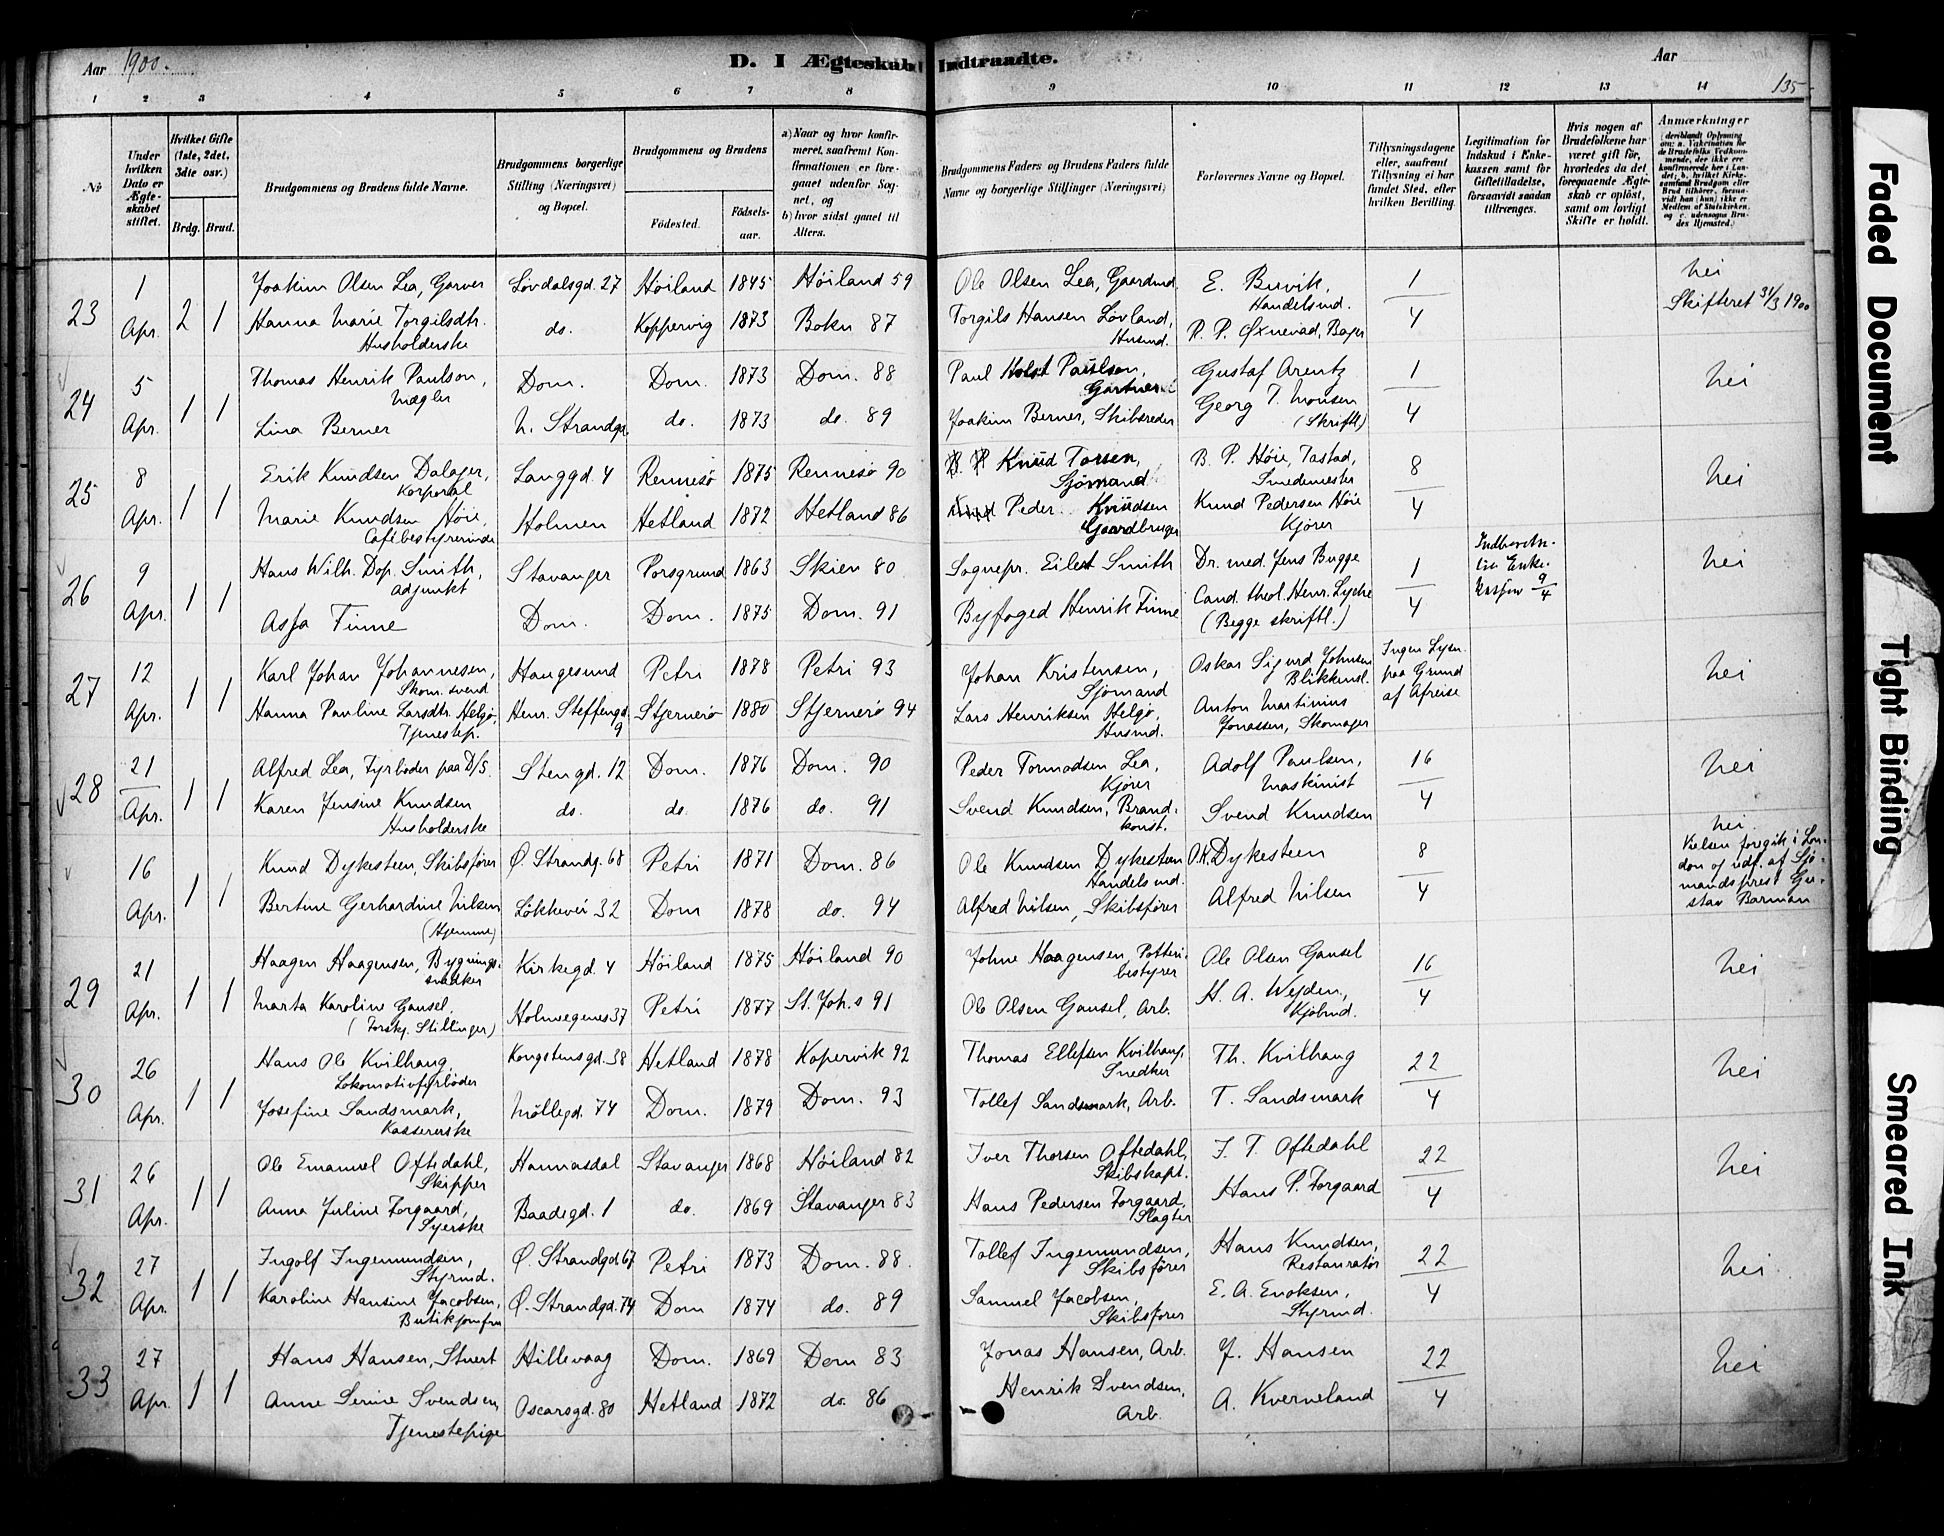 Aar 1900.
D. I Ægteskab Indtraadte.
Aar
135
1 2 3 4 5 6 7 8 9 10 11 12 13 14
No
Under hvilken Dato er Ægteskabet stiftet.
Hvilket Gifte (1ste, 2det, 3die osv.)
Brdg. Brud.
Brudgommens og Brudens fulde Navne.
Brudgommens borgerlige Stilling (Næringsvei) og Bopæl.
Brudgommens og Brudens
Fødested.
Fødselsaar.
a) Naar og hvor konfirmeret, saafremt Konfirmationen er foregaaet udenfor Sognet, og
b) hvor sidst gaaet til Alters.
Brudgommens Faders og Brudens Faders fulde Navne og borgerlige Stillinger (Næringsvei)
Forlovernes Navne og Bopæl.
Tillysningsdagene eller, saafremt Tillysning ei har fundet Sted, efter hvilken Bevilling.
Legitimation for Indskud i Enkekassen samt for Giftetilladelse, forsaavidt saadan tiltrænges.
Hvis nogen af Brudefolkene har været gift før, hvorledes da det foregaaende Ægteskab er opløst, samt om lovligt Skifte er holdt.
Anmærkninger
23 1 Apr. 2 1 Joakim Olsen Lea, Garver Løvdalsgd. 27 Høiland 1845 Høiland 59 Ole Olsen Lea, Gaardmd. E. Buvik, Handelsmd. 1/4 Nei
Hanna Marie Torgilsdtr. Husholderske do. Koppervig 1873 Bokn 87 Torgils Hansen Løvland, Husmd. P. P. Øxnevad, Bager Skifteret 31/3 1900
24 5 Apr. 1 1 Thomas Henrik Paulson, Mægler Dom. Dom. 1873 Dom. 88 Paul Holst Paulson, Gartner Gustaf Arentz 1/4 Nei
Lina Berner N. Strandgd. do. 1873 do. 89 Joakim Berner, Skibsreder Georg T. Monsen (Skriftl.)
25 8 Apr. 1 1 Erik Knudsen Dalager, Korporal Langgd. 4 Rennesø 1875 Rennesø 90 Knud Torsen, Sjømand B. P. Høie, Tastad, Smedemester 8/4 Nei
Marie Knudsen Høie, Cafébestyrerinde Holmen Hetland 1872 Hetland 86 Peder Knudsen Gaardbruger Knud Pedersen Høie Kjører
26 9 Apr. 1 1 Hans Wilh. Dop. Smith, Adjunkt Stavanger Porsgrund 1863 Skien 80 Sognepr. Eilert Smith Dr. med. Jens Bugge 1/4 Nei
Aasa Finne Dom. Dom. 1875 Dom. 91 Byfoged Henrik Finne Cand. theol. Henr. Lyche (Begge skriftl.)
27 12 Apr. 1 1 Karl Johan Johannesen, Skom. svend Haugesund Petri 1878 Petri 93 Johan Kristensen, Sjømand Oskar Sigurd Johnsen Blikkensl. Ingen Lysn. paa Grund af Afreise Nei
Hanna Pauline Larsdtr. Helgø, Tjenestep. Henr. Steffensgd. 9 Stjernerø 1880 Stjernerø 94 Lars Henriksen Helgø, Husmd. Anton Martinius Jonassen, Skomager
28 21 Apr. 1 1 Alfred Lea, Fyrbøder paa D/S. Stengd. 12 Dom. 1876 Dom. 90 Peder Tormodsen Lea, Kjører Adolf Paulsen, Maskinist 16/4 Nei
Karen Jensine Knudsen Husholderske do. do. 1876 do. 91 Svend Knudsen, Brandkonst. Svend Knudsen
16 Apr. 1 1 Knud Dykesteen, Skibsfører Ø. Strandg. 68 Petri 1871 Dom. 86 Ole Knudsen Dykesteen Handelsmd. O. K. Dykesteen 8/4 Nei
Bertine Gerhardine Nilsen (Hjemme) Løkkevei 32 Dom 1878 do. 94 Alfred Nilsen, Skibsfører Alfred Nilsen Vielsen foregik i London og udf. af Sjømandsprest Gustav Barman
29 21 Apr. 1 1 Haagen Haagensen, Bygningssnedker Kirkegd. 4 Høiland 1875 Høiland 90 Johne Haagensen, Potteribestyrer Ole Olsen Gausel 16/4 Nei
Marta Karoline Gausel, (Forskj. Stillinger) Holmegenes 37 Petri 1877 St. Joh.s 91 Ole Olsen Gausel, Arb. H. A. Weyden, Kjøbmd.
30 26 Apr. 1 1 Hans Ole Kvilhaug, Lokomotivfyrbøder Kongstensgd. 38 Hetland 1878 Kopervik 92 Thomas Ellefsen Kvilhaug, Snedker Th. Kvilhaug 22/4 Nei
Josefine Sandsmark, Kassererske Møllegd. 74 Dom. 1879 Dom. 93 Tollef Sandsmark, Arb. T. Sandsmark
31 26 Apr. 1 1 Ole Emanuel Oftedahl, Skipper Hannasdal Stavanger 1868 Høiland 82 Iver Thorsen Oftedahl, Skibskapt. J. T. Oftedahl 22/4 Nei
Anna Juline Torgaard, Syerske Baadegd. 1 do. 1869 Stavanger 83 Hans Pedersen Torgaard, Slagter Hans P. Torgaard
32 27 Apr. 1 1 Ingolf Ingemundsen, Styrmd. Ø. Strandgd 67 Petri 1873 Dom. 88. Tollef Ingemundsen, Skibsfører Hans Knudsen, Restauratør 22/4 Nei
Karoline Hansine Jacobsen, Butikjomfru Ø. Strandgd. 74 Dom 1874 do. 89 Samuel Jacobsen, Skibsfører E. A. Enoksen, Styrmd.
33 27 Apr. 1 1 Hans Hansen, Stuert Hillevaag Dom. 1869 Dom 83 Jonas Hansen, Arb. J. Hansen 22/4 Nei
Anne Serine Svendsen, Tjenestepige Oscarsgd. 80 Hetland 1872 do. 86 Henrik Svendsen, Arb. A. Kverneland
Faded Document
Tight Binding
Smeared Ink